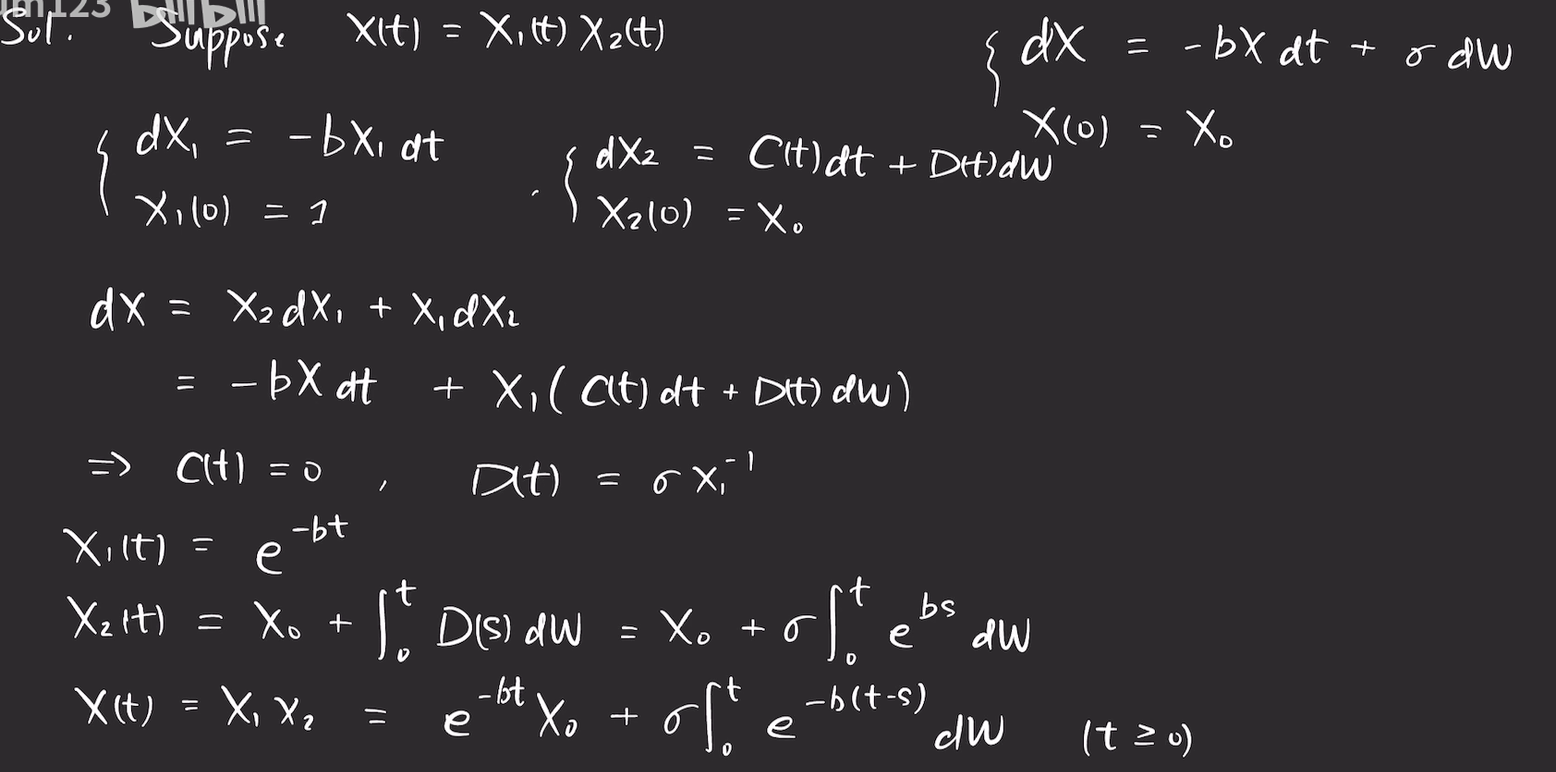 Sol. Suppose X(t) = X₁(t) X₂(t)
{ dX = -bX dt + σ dW
X(0) = X₀
{ dX₁ = -bX₁ dt
X₁(0) = 1
{ dX₂ = C(t)dt + D(t)dW
X₂(0) = X₀
dX = X₂dX₁ + X₁dX₂
= -bX dt + X₁( C(t) dt + D(t) dW)
=> C(t) = 0 , D(t) = σ X₁⁻¹
X₁(t) = e^{-bt}
X₂(t) = X₀ + ∫₀ᵗ D(s) dW = X₀ + σ∫₀ᵗ e^{bs} dW
X(t) = X₁ X₂ = e^{-bt} X₀ + σ∫₀ᵗ e^{-b(t-s)} dW (t ≥ 0)